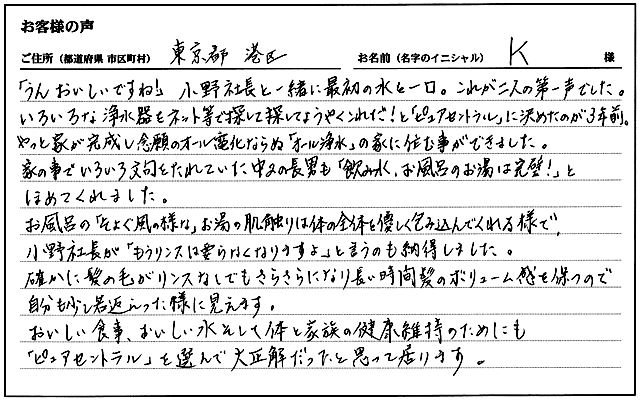 お客様の声
ご住所（都道府県 市区町村） 東京都 港区 お名前（名字のイニシャル） K 様
「うん おいしいですね！」 小野社長と一緒に最初の水を一口。これが二人の第一声でした。
いろいろな浄水器をネット等で探して探してようやくこれだ！と「ピュアセントラル」に決めたのが3年前。
やっと家が完成し念願のオール電化ならぬ「オール浄水」の家に住む事ができました。
家の事でいろいろ文句をたれていた中2の長男も「飲み水、お風呂のお湯は完璧！」と
ほめてくれました。
お風呂の「そよぐ風の様な」お湯の肌触りは体の全体を優しく包み込んでくれる様で、
小野社長が「もうリンスは要らなくなりますよ」と言うのも納得しました。
確かに髪の毛がリンスなしでもさらさらになり長い時間髪のボリューム感を保つので
自分も少し若返った様に見えます。
おいしい食事、おいしい水そして体と家族の健康維持のためにも
「ピュアセントラル」を選んで大正解だったと思って居ります。